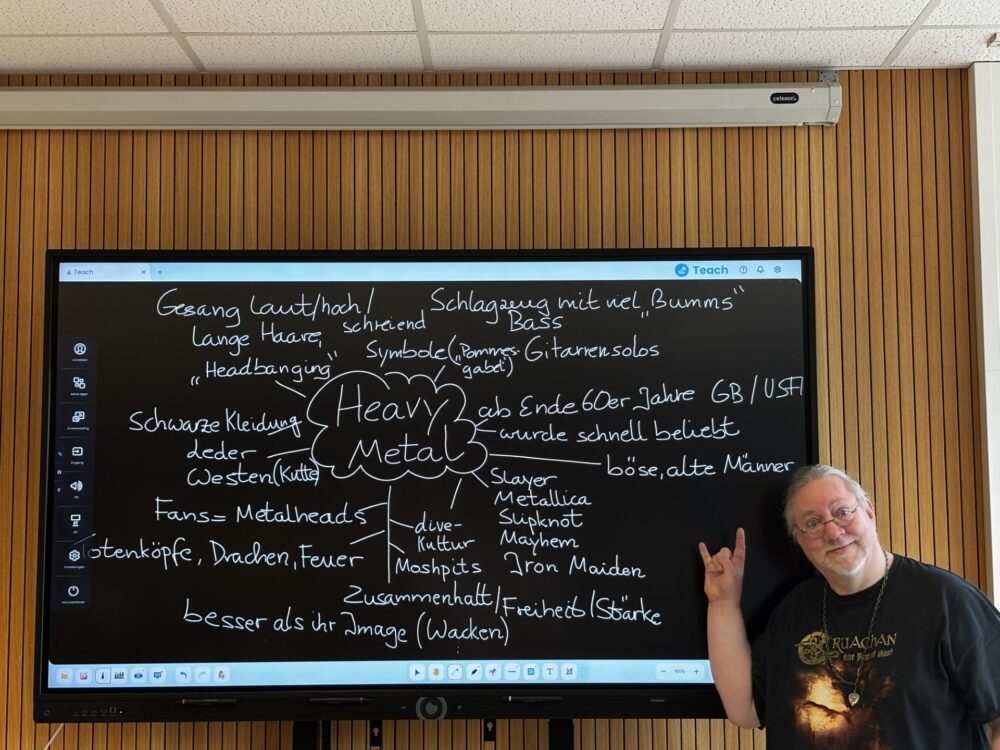 celexon
Teach
Teach
Gesang laut/hoch/
schreiend
Schlagzeug mit viel „Bumms"
Bass
Lange Haare,
„Headbanging"
Symbole („Pommes-
gabel")
Gitarrensolos
Heavy
Metal
ab Ende 60er Jahre GB / USA
wurde schnell beliebt
böse, alte Männer
Schwarze Kleidung
Leder
Westen (Kutte)
Slayer
Metallica
Slipknot
Mayhem
Iron Maiden
Fans = Metalheads
Totenköpfe, Drachen, Feuer
dive-
Kultur
Moshpits
Zusammenhalt/Freiheit/Stärke
besser als ihr Image (Wacken)
CRUACHAN